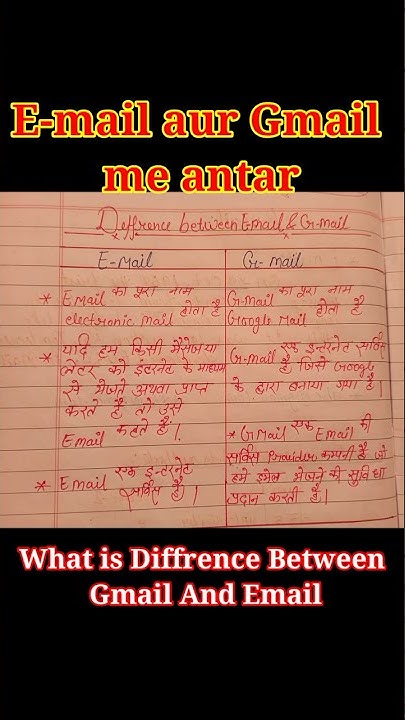 E-mail aur Gmail
me antar
Deffrence between Email & G-mail
E-Mail
* Email का पूरा नाम
electronic mail होता है
* यदि हम किसी मैसेज या
लेटर को इंटरनेट के माध्यम
से भेजते अथवा प्राप्त
करते हैं तो उसे
Email कहते हैं।
* Email एक इन्टरनेट
सर्विस है।
G-mail
G-mail का पूरा नाम
Google Mail होता है
G-mail एक इन्टरनेट सर्विस
है जिसे Google
के द्वारा बनाया गया है।
* GMail एक Email की
सर्विस Provider कम्पनी है जो
हमे ईमेल भेजने की सुविधा
प्रदान करती है।
What is Diffrence Between
Gmail And Email